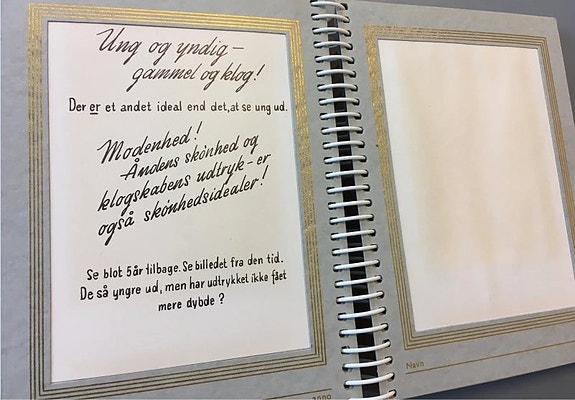 Ung og yndig –
gammel og klog!
Der er et andet ideal end det, at se ung ud.
Modenhed!
Åndens skønhed og
klogskabens udtryk - er
også skønhedsidealer!
Se blot 5 år tilbage. Se billedet fra den tid.
De så yngre ud, men har udtrykket ikke fået
mere dybde ?
Navn